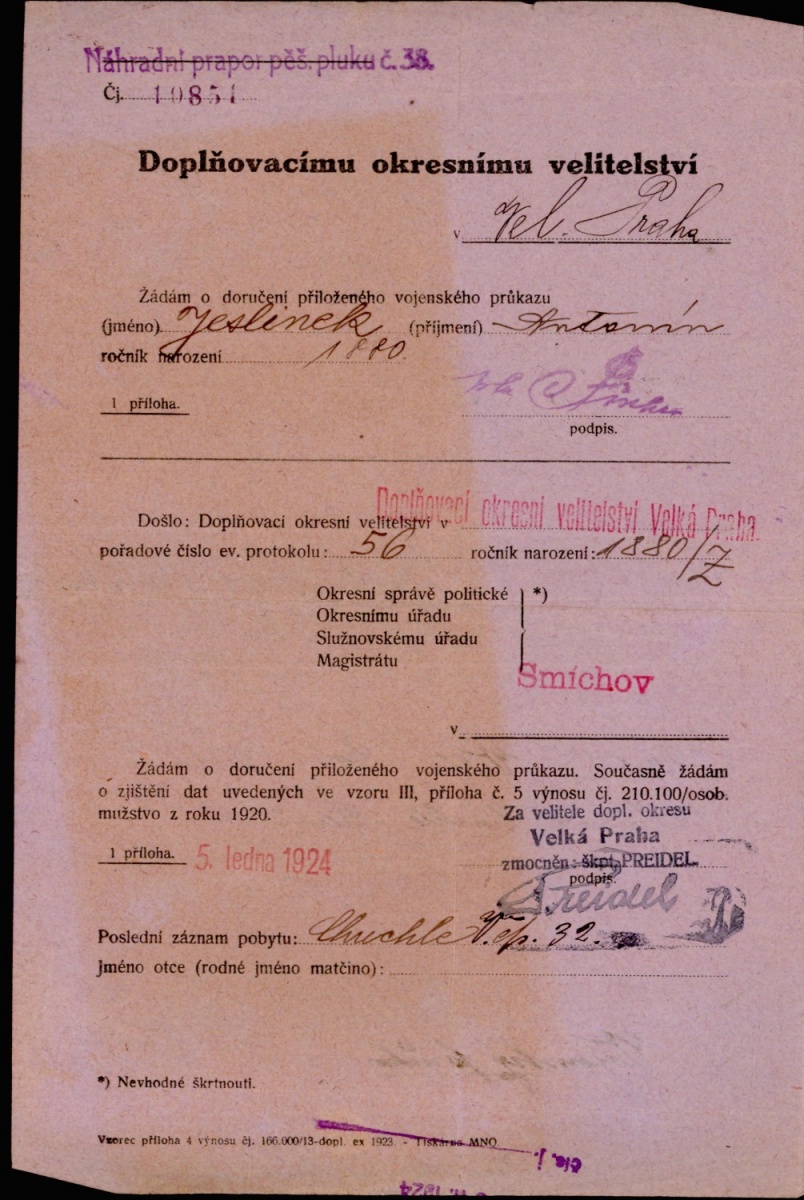 Náhradní prapor pěš. pluku č. 38.
Čj. 10851
Doplňovacímu okresnímu velitelství
v Vel. Praha
Žádám o doručení přiloženého vojenského průkazu
(jméno) Jeslínek (příjmení) Antonín
ročník narození 1880.
1 příloha.
podpis.
Doplňovací okresní velitelství Velká Praha.
Došlo: Doplňovací okresní velitelství v
pořadové číslo ev. protokolu: 56 ročník narození: 1880/Z
Okresní správě politické *)
Okresnímu úřadu
Služnovskému úřadu
Magistrátu
Smíchov
v
Žádám o doručení přiloženého vojenského průkazu. Současně žádám
o zjištění dat uvedených ve vzoru III, příloha č. 5 výnosu čj. 210.100/osob.
mužstvo z roku 1920.
Za velitele dopl. okresu
Velká Praha
1 příloha. 5. ledna 1924
zmocněn: škpt. PREIDEL.
podpis.
Preidel
Poslední záznam pobytu: Chuchle V. čp. 32.
Jméno otce (rodné jméno matčino):
*) Nevhodné škrtnouti.
Vzorec příloha 4 výnosu čj. 166.000/13-dopl. ex 1923. - Tiskárna MNO
Čís. j.
1924